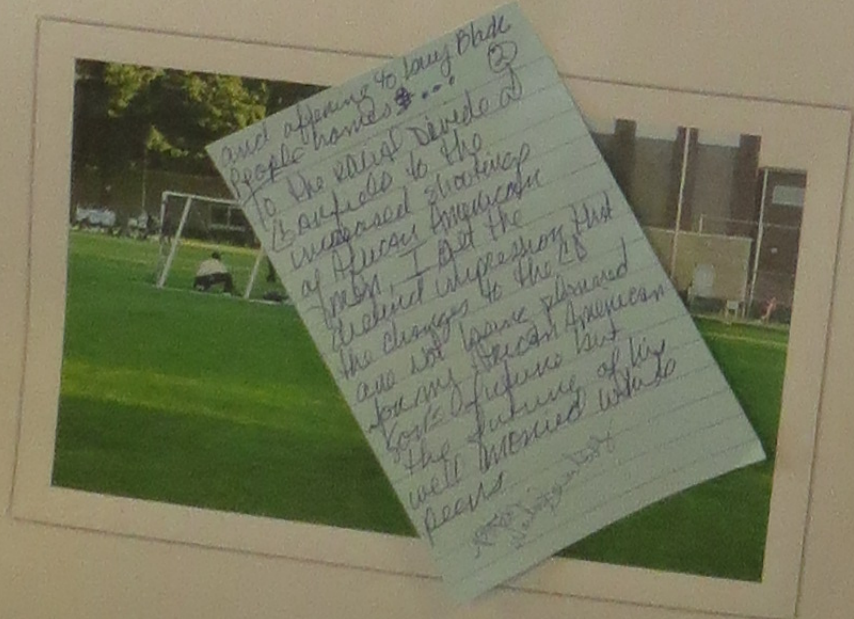 and offering to buy Black
people homes ...
②
To the racial divide at
Garfield to the
increased shootings
of African American
men, I get the
distinct impression that
the changes to the CD
are not being planned
for my African American
son's future but
the future of his
well monied white
peers